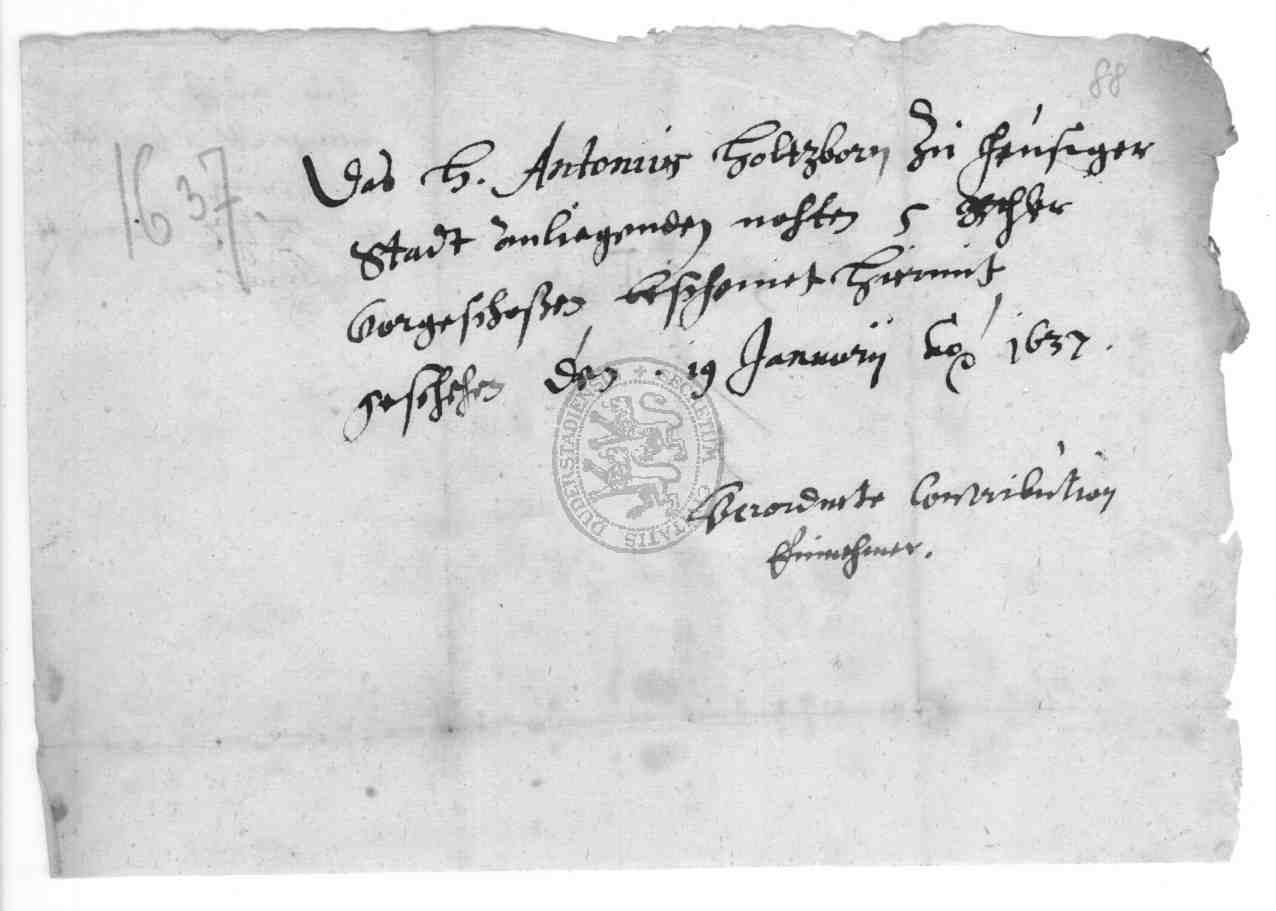 88
1637.
Das H. Antonius Holtzborn zu hensiger
Stadt anliegenden nohten 5 Rthlr
vorgeschoßen bescheinet hiermit
geschehen den 19 Januarij Aõ 1637.
Verordnete Contribution
Einnehmer.
SECRETUM CIVITATIS DUDERSTADIENSIS